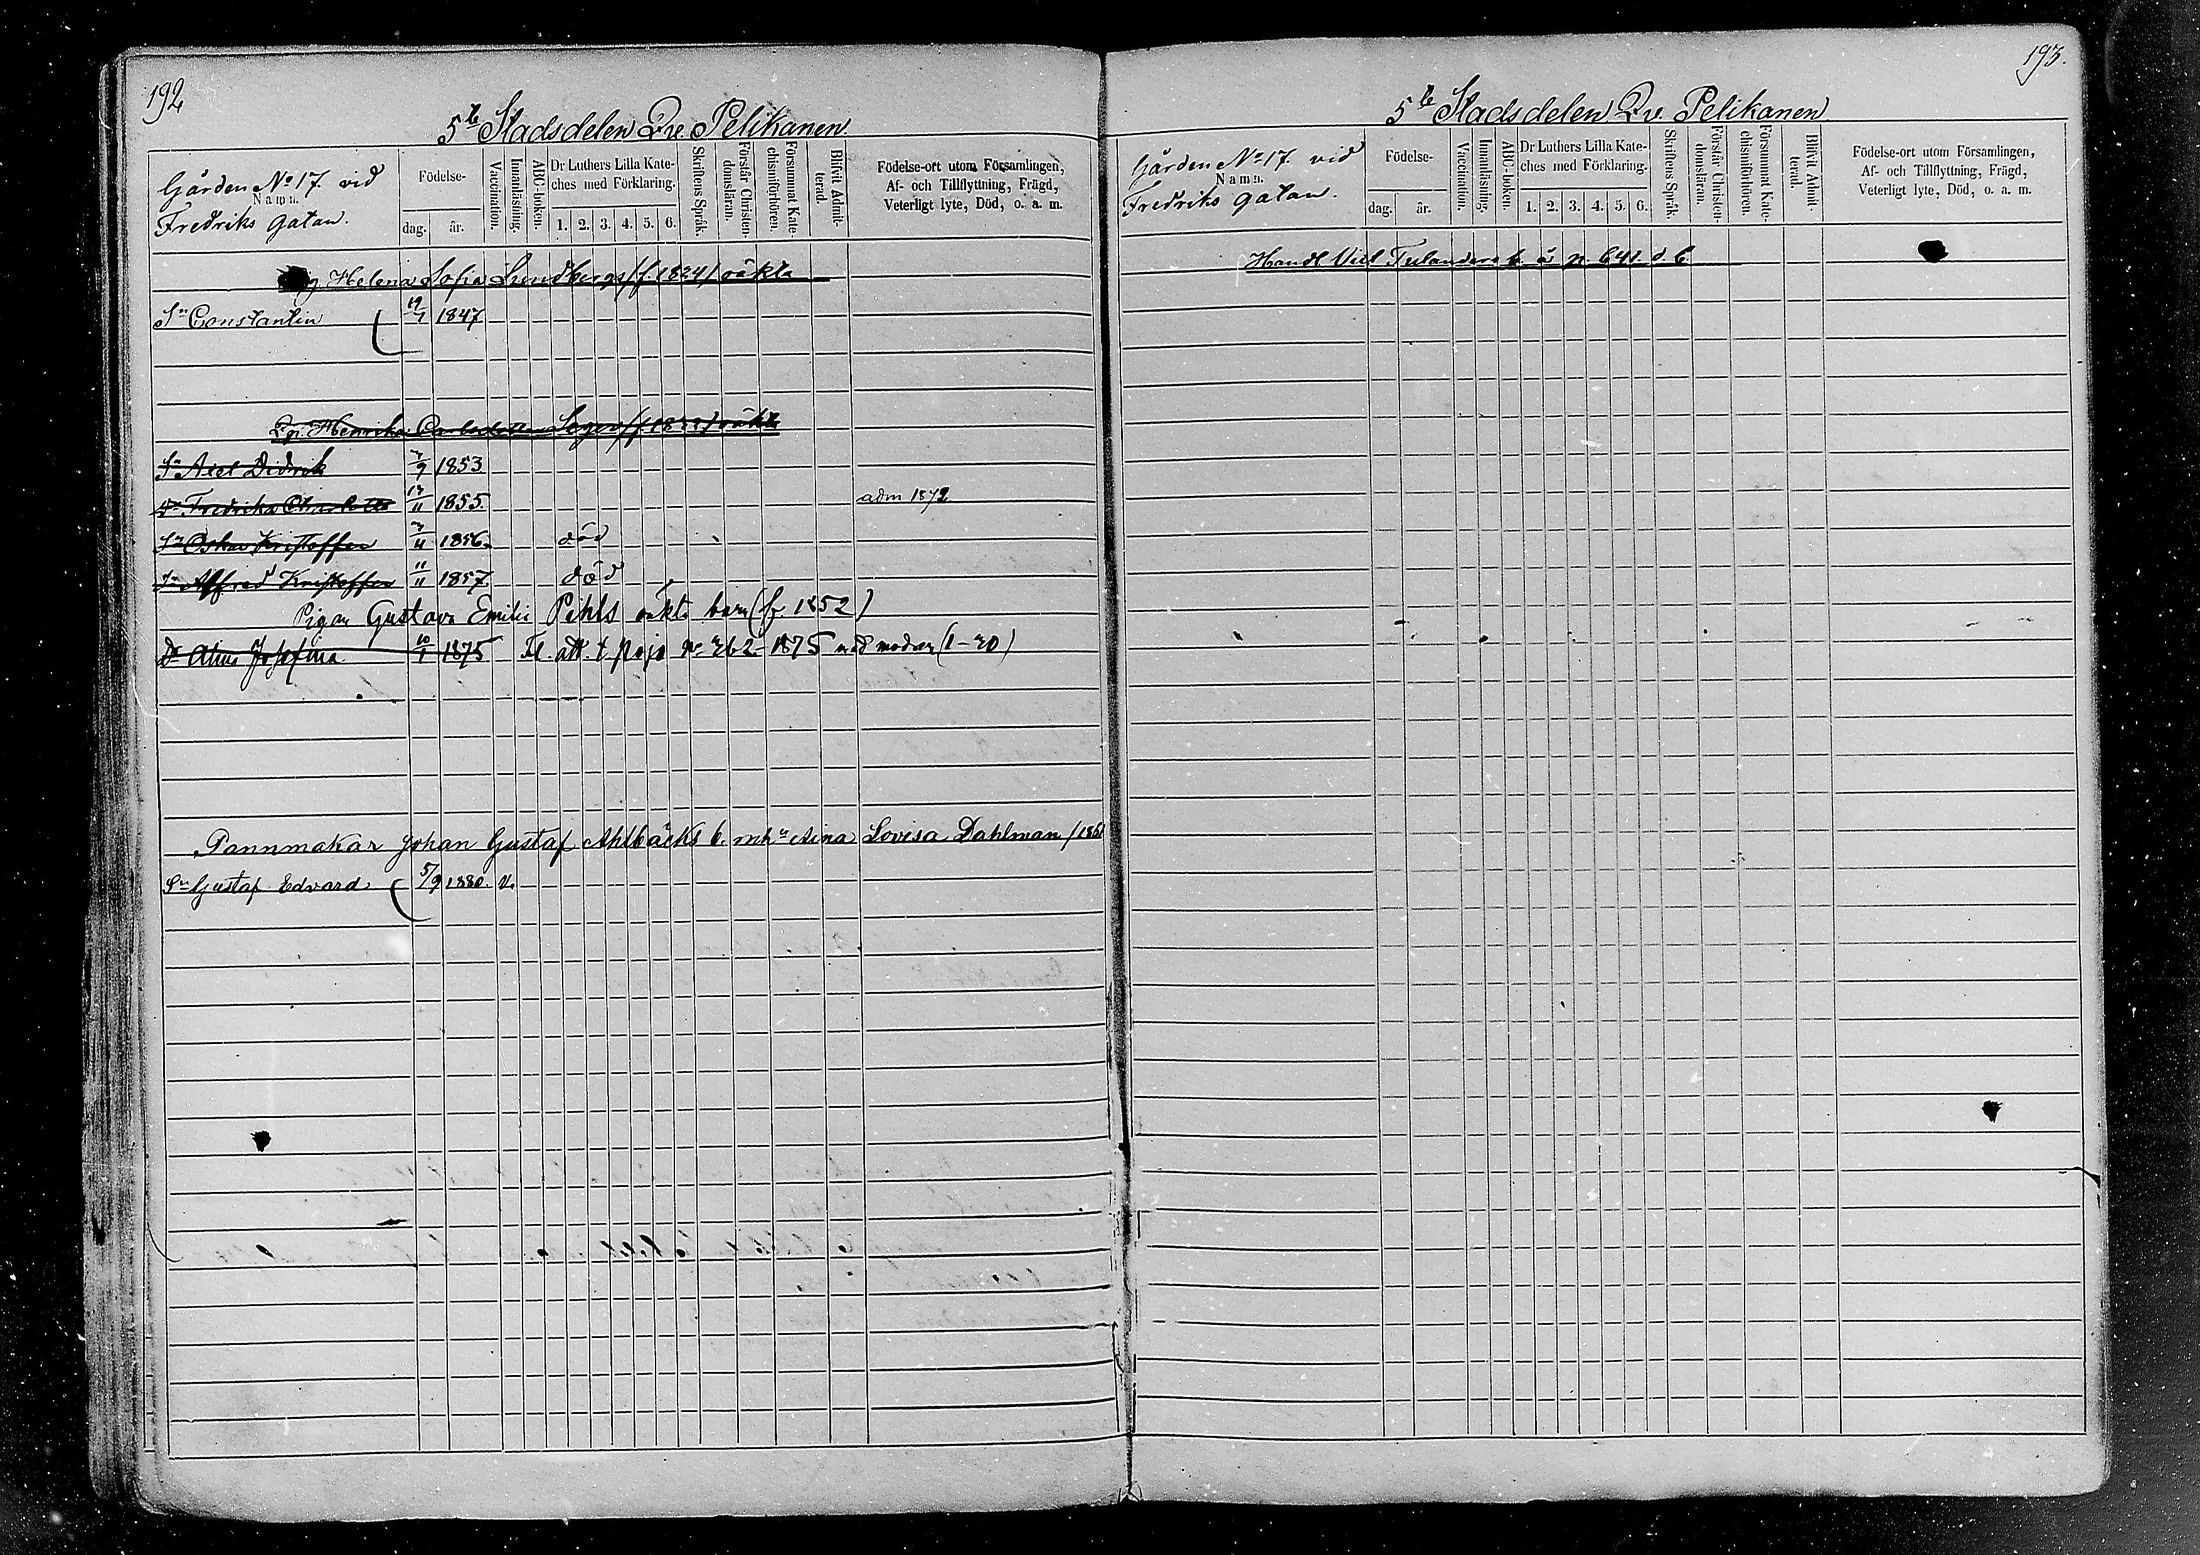 192
5te Stadsdelen Qv. Pelikanen
Gården No 17 vid
Namn.
Fredriks gatan.
Födelse-
dag. år.
Vaccination.
Innanläsning.
ABC-boken.
Dr Luthers Lilla Kate-
ches med Förklaring.
1. 2. 3. 4. 5. 6.
Skriftens Språk.
Förstår Christen-
domsläran.
Försummat Kate-
chismiförhören.
Blifvit Admit-
terad.
Födelse-ort utom Församlingen,
Af- och Tillflyttning, Frägd,
Veterligt lyte, Död, o. a. m.
Helena Sofia Lundbergs /f. 1824/ oäkta
Sn Constantin 1847
Henrika oäkta
Sn Axel Didrik 7/9 1853
Dr Fredrika Charlotta 1855. adm 1872
Sn Oskar Kristoffer 1856. död
Sn Alfred Kristoffer 11/11 1857. död
Pigan Gustava Emilie Pihls oäkta barn (f. 1852)
Dr Alma Josefina 10/1 1875 Fl. att. t. Pojo No 362 1875 med modren (1-20)
Pannmakar Johan Gustaf Ahlbäcks b. m. h. Aina Lovisa Dahlman /1861
Sn Gustaf Edvard 5/9 1880. v.
193.
5te Stadsdelen Qv. Pelikanen
Gården No 17 vid
Namn.
Fredriks gatan.
Födelse-
dag. år.
Vaccination.
Innanläsning.
ABC-boken.
Dr Luthers Lilla Kate-
ches med Förklaring.
1. 2. 3. 4. 5. 6.
Skriftens Språk.
Förstår Christen-
domsläran.
Försummat Kate-
chismiförhören.
Blifvit Admit-
terad.
Födelse-ort utom Församlingen,
Af- och Tillflyttning, Frägd,
Veterligt lyte, Död, o. a. m.
Handl Vict Tulanders b. å p 641 d. b.